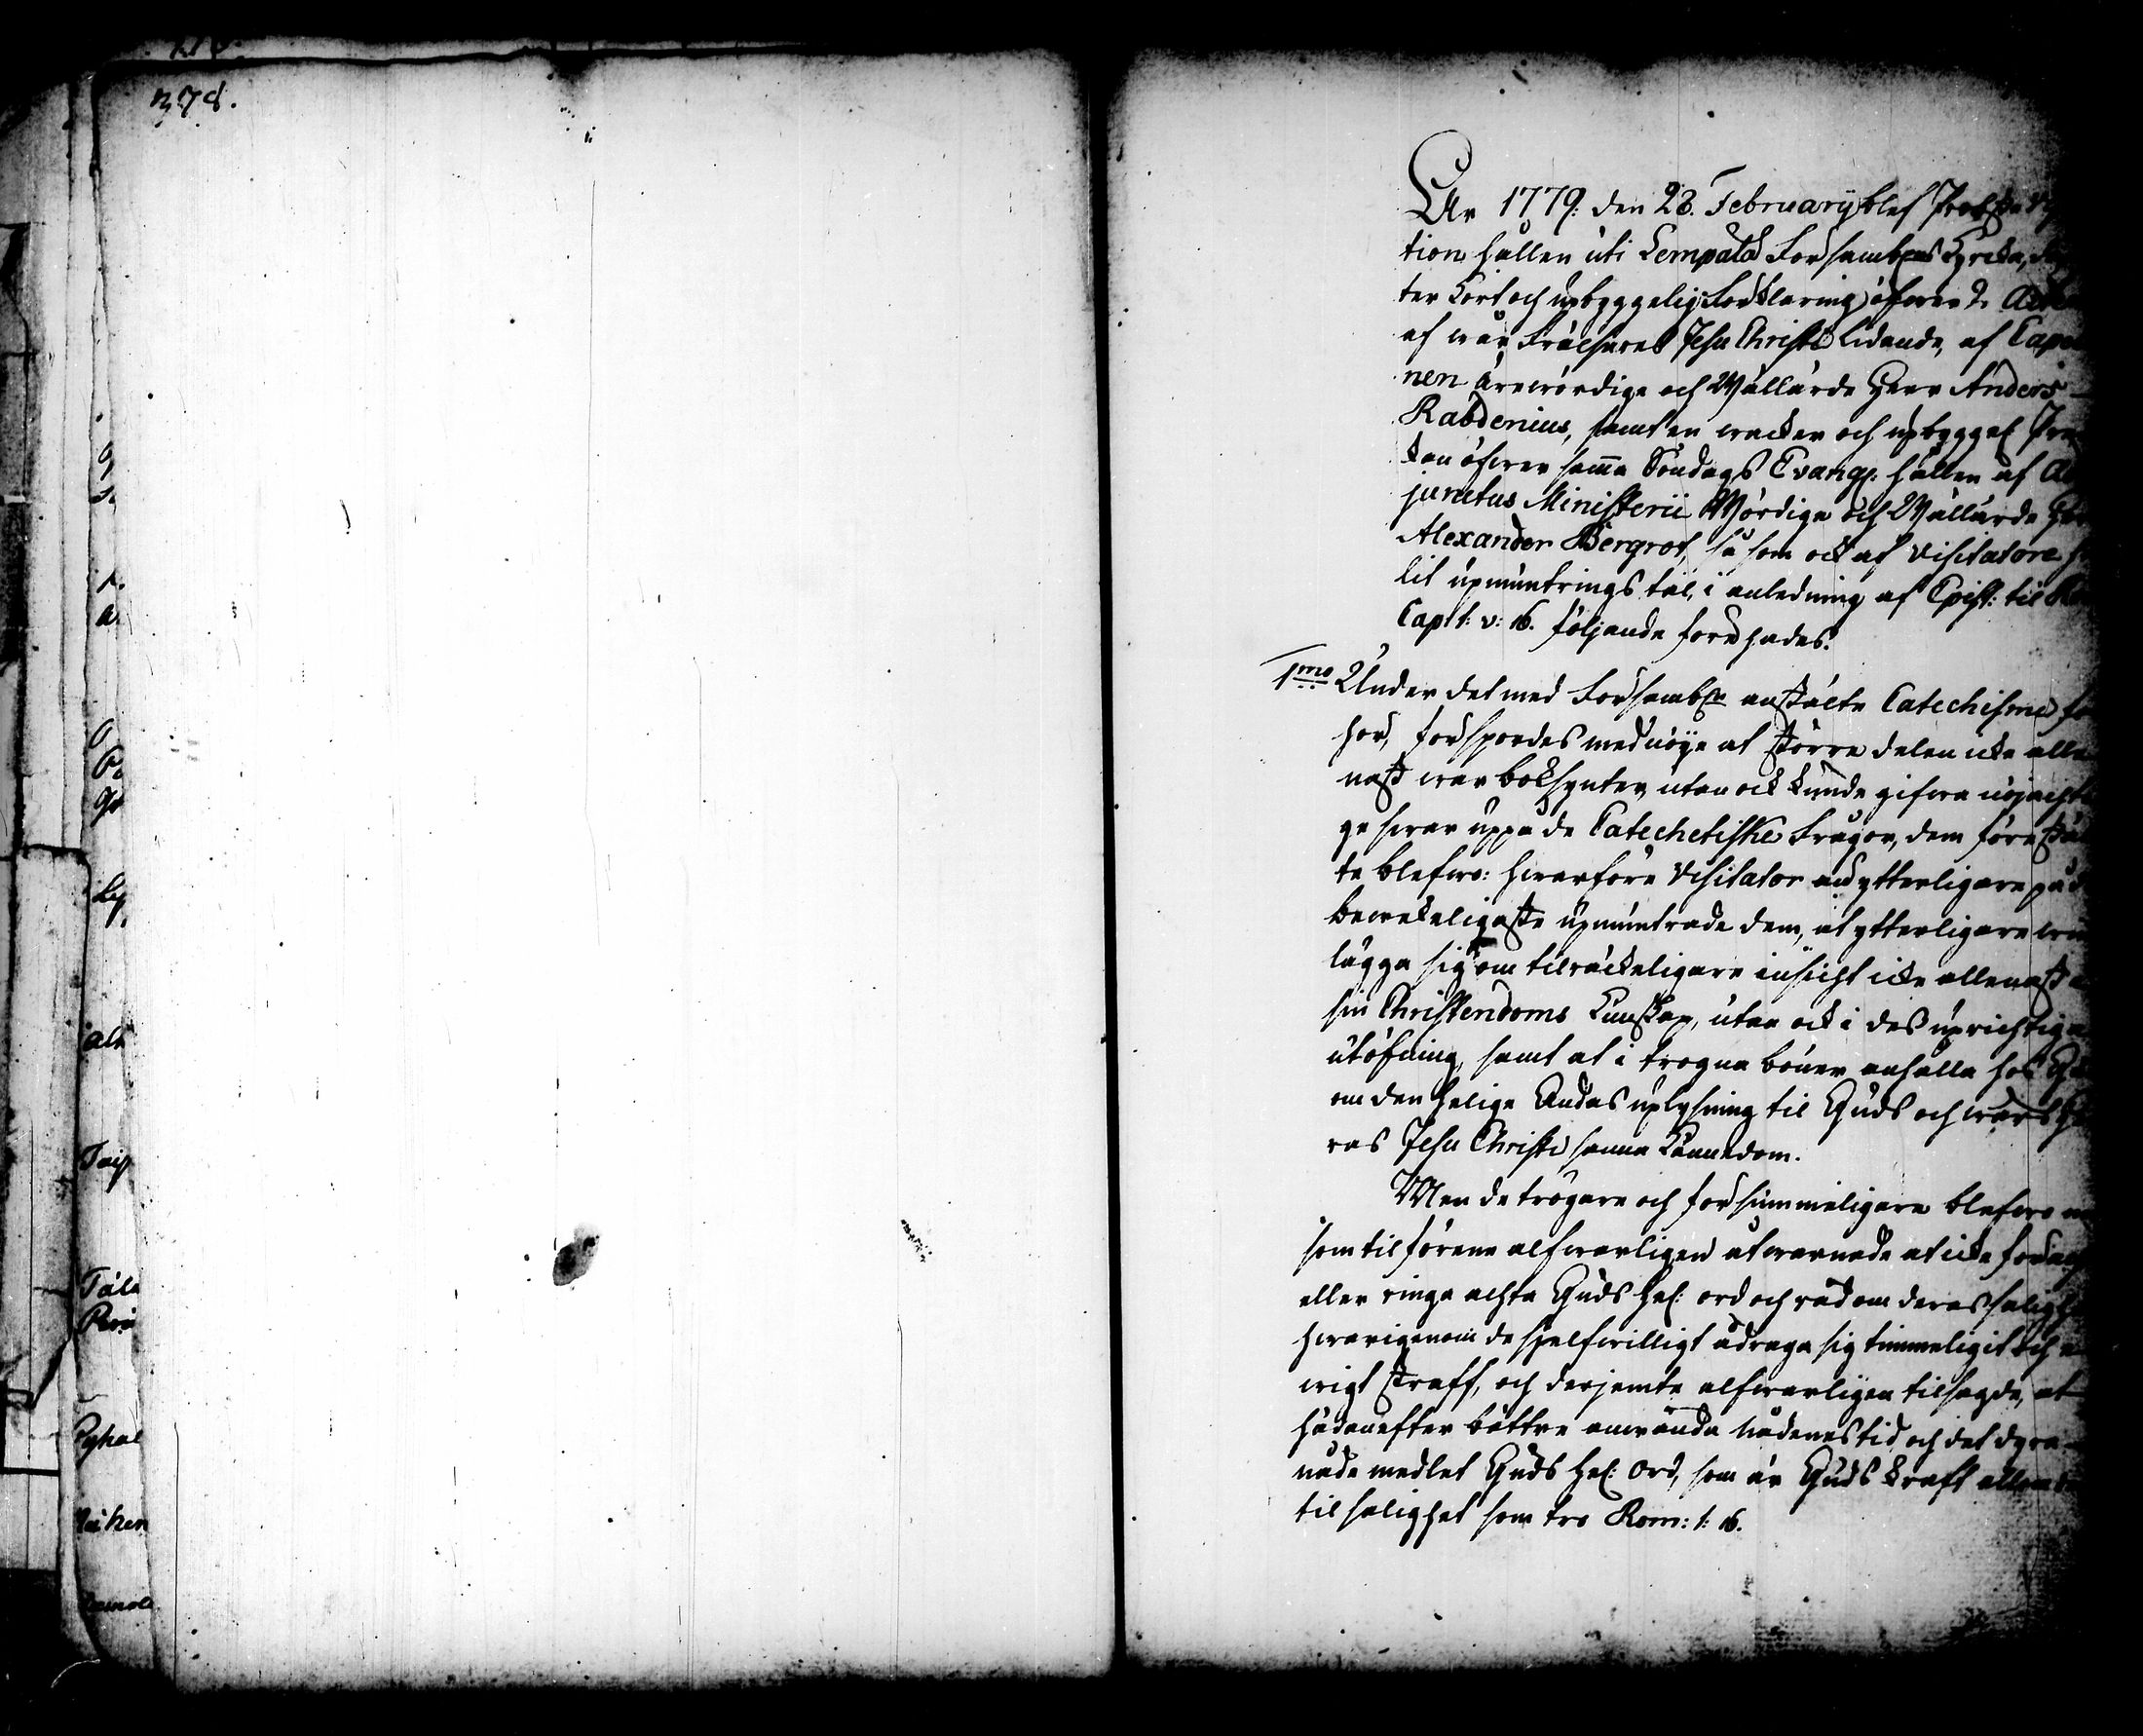 378.
År 1779. den 28. Februarÿ blef Probste Vi
tion hållen uti Lempälä Församlens Kyrcka, 
ter kort och upbyggelig förklaring öfwer 2. Acten
af wår Frälsares Jesu Christi Lidande, af Capela
nen ärewördige och Wällärde Herr Anders
Rabdenius, samt en wacker och upbyggel. Pre
kan öfwer samma Söndags Evang. hållen af Ad
junctus Ministerii Wördige och Wällärde Herr
Alexander Bergrot, så som ock af Visitatore
lit upmuntrings tal, i anledning af Epist: til Rom
Cap 1: v: 16. följande förehades.
1mo Under det med Församlen anstälte Catechismi för
hör, förspordes med nöye at större delen icke alle
nast war boksynter, utan ock kunde gifwa nöjachti
ge swar uppå de Catechetiske frågor, dem förestäl
te blefwo: hwarföre Visitator än ytterligare på d
bewekeligaste upmuntrade dem, at ytterligare win
lägga sig om tilräckeligare insicht icke allenast
sin Christendoms Kunskap, utan ock i des uprichtiga
utöfning, samt at i trogna böner anhålla hos Gud
om den helige Andas uplysning til Guds och wårs Her
ras Jesu Christi sanna Kännedom.
Men de trögare och försummeligare blefwo nu
som tilförene alfwarligen utwarnade at icke förackt
eller ringa achta Guds hel: ord och råd om deras saligh
hwarigenom de sjelfwilligt ådraga sig timmeligit och e
wigt straff, och derjemte alfwarligen tilsagde, at
hädanefter bättre anwända nådenes tid och det dyra
nåde medlet Guds hel: ord, som är Guds kraft allom
til salighet som tro Rom: 1: 16.
Alk
Taip
Pyhäl